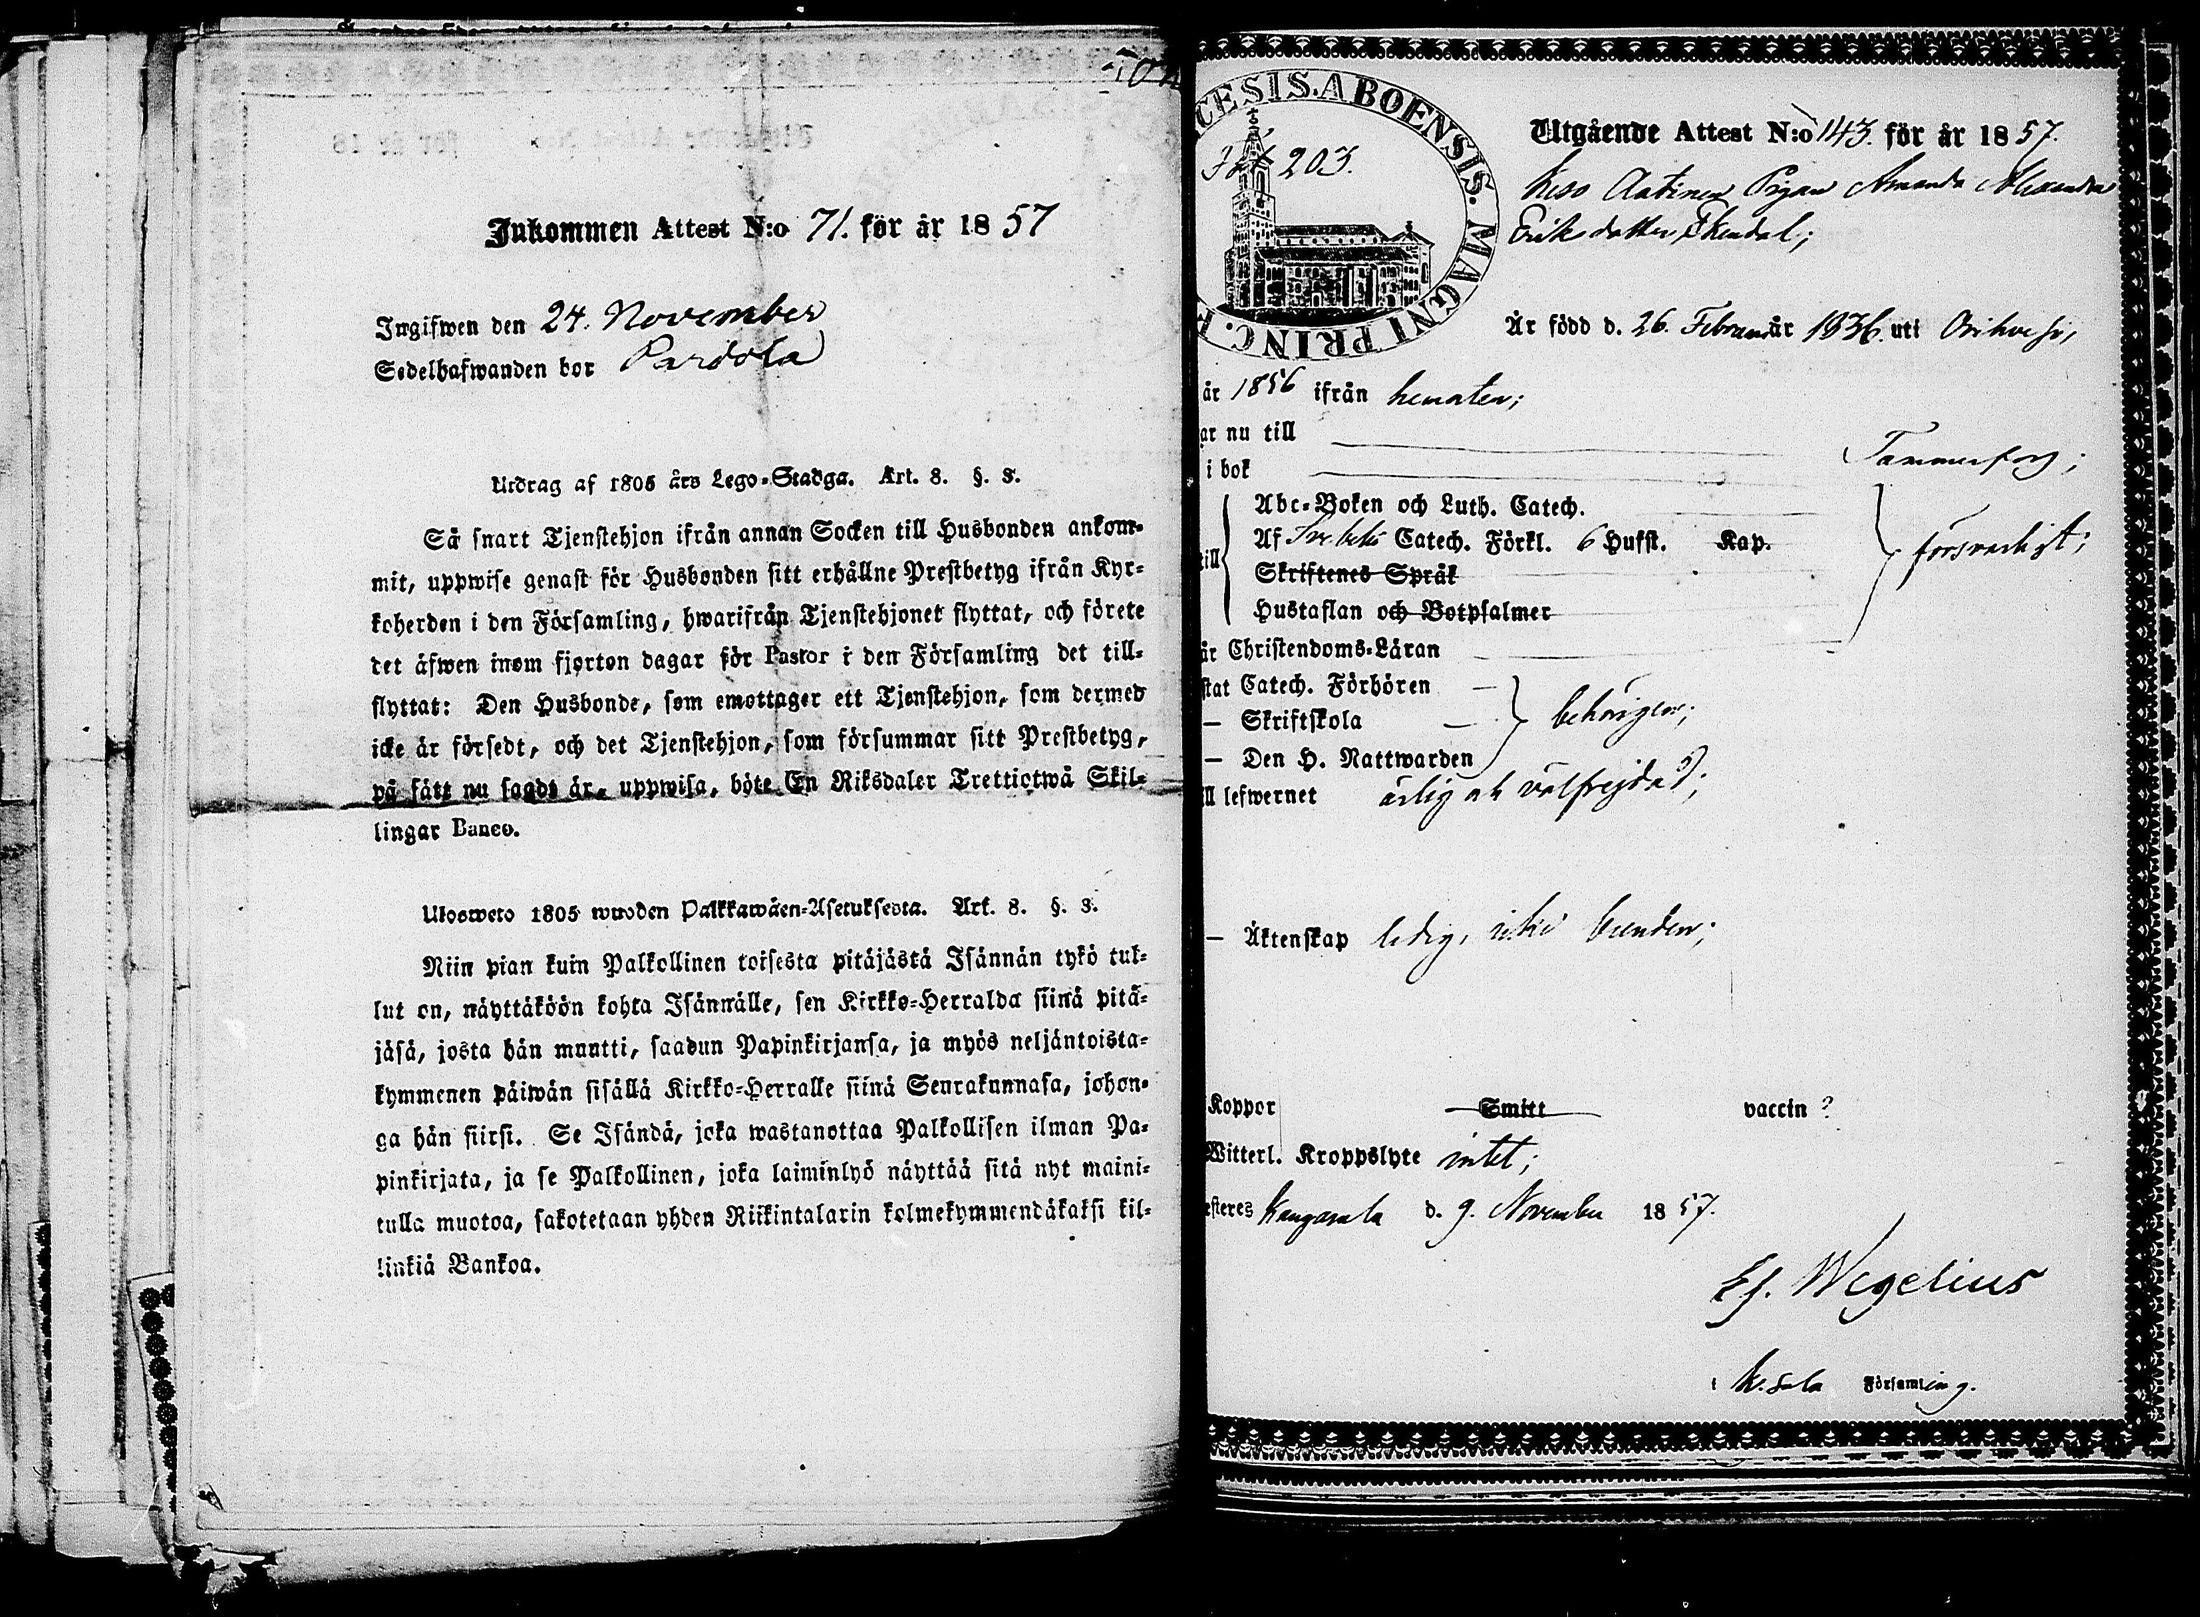 Inkommen Attest N:o 71. för år 1857
Ingifwen den 24. November
Sedelhafwanden bor Pardola
Utdrag af 1805 års Lego-Stadga. Art. 8. §. 3.
Så snart Tjenstehjon ifrån annan Socken till Husbonden ankom-
mit, uppwise genast för Husbonden sitt erhållne Prestbetyg ifrån Kyr-
koherden i den Församling, hwarifrån Tjenstehjonet flyttat, och förete
det äfwen inom fjorton dagar för Pastor i den Församling det till-
flyttat: Den Husbonde, som emottager ett Tjenstehjon, som dermed
icke är försedt, och det Tjenstehjon, som försummar sitt Prestbetyg,
på sätt nu sagdt är, uppwisa, böte En Riksdaler Trettiotwå Skil-
lingar Banco.
Ulosweto 1805 wuoden Palkkawäen-Asetuksesta. Art. 8. §. 3.
Niin pian kuin Palkollinen toisesta pitäjästä Isännän tykö tul-
lut on, näyttäköön kohta Isännälle, sen Kirkko-Herralda siinä pitä-
jäsä, josta hän muutti, saadun Papinkirjansa, ja myös neljäntoista-
kymmenen päiwän sisällä Kirkko-Herralle siinä Seurakunnasa, johon-
ga hän siirsi. Se Isändä, joka wastanottaa Palkollisen ilman Pa-
pinkirjata, ja se Palkollinen, joka laiminlyö näyttää sitä nyt maini-
tulla muotoa, sakotetaan yhden Riikintalarin kolmekymmendäkaksi kil-
linkiä Bankoa.
CESIS. ABOENSIS. MAGNI PRINC. F
203.
Utgående Attest N:o 143. för år 1857.
Pigan Amanda Alexandra
Eriksdotter Ekendal;
Är född d. 26. Februari år 1836. uti Orihvesi,
år 1856 ifrån hemorten;
ar nu till
Tammerfors;
i bok
Abc-Boken och Luth. Catech.
Af Svebelii Catech. Förkl. 6 Hufst. Kap.
försvarligt;
Skriftenes Språk
Hustaflan och Botpsalmer
år Christendoms-Läran
stat Catech. Förhören
— Skriftskola
behörigen;
— Den H. Nattwarden
ll lefwernet ärlig och välfrejdad;
— Äktenskap ledig, icke bunden;
Koppor Smitt vaccin ?
Witterl. Kroppslyte intet;
esteres Kangasala d. 9. November 1857.
Ef. Wegelius
i K:sala Församling.